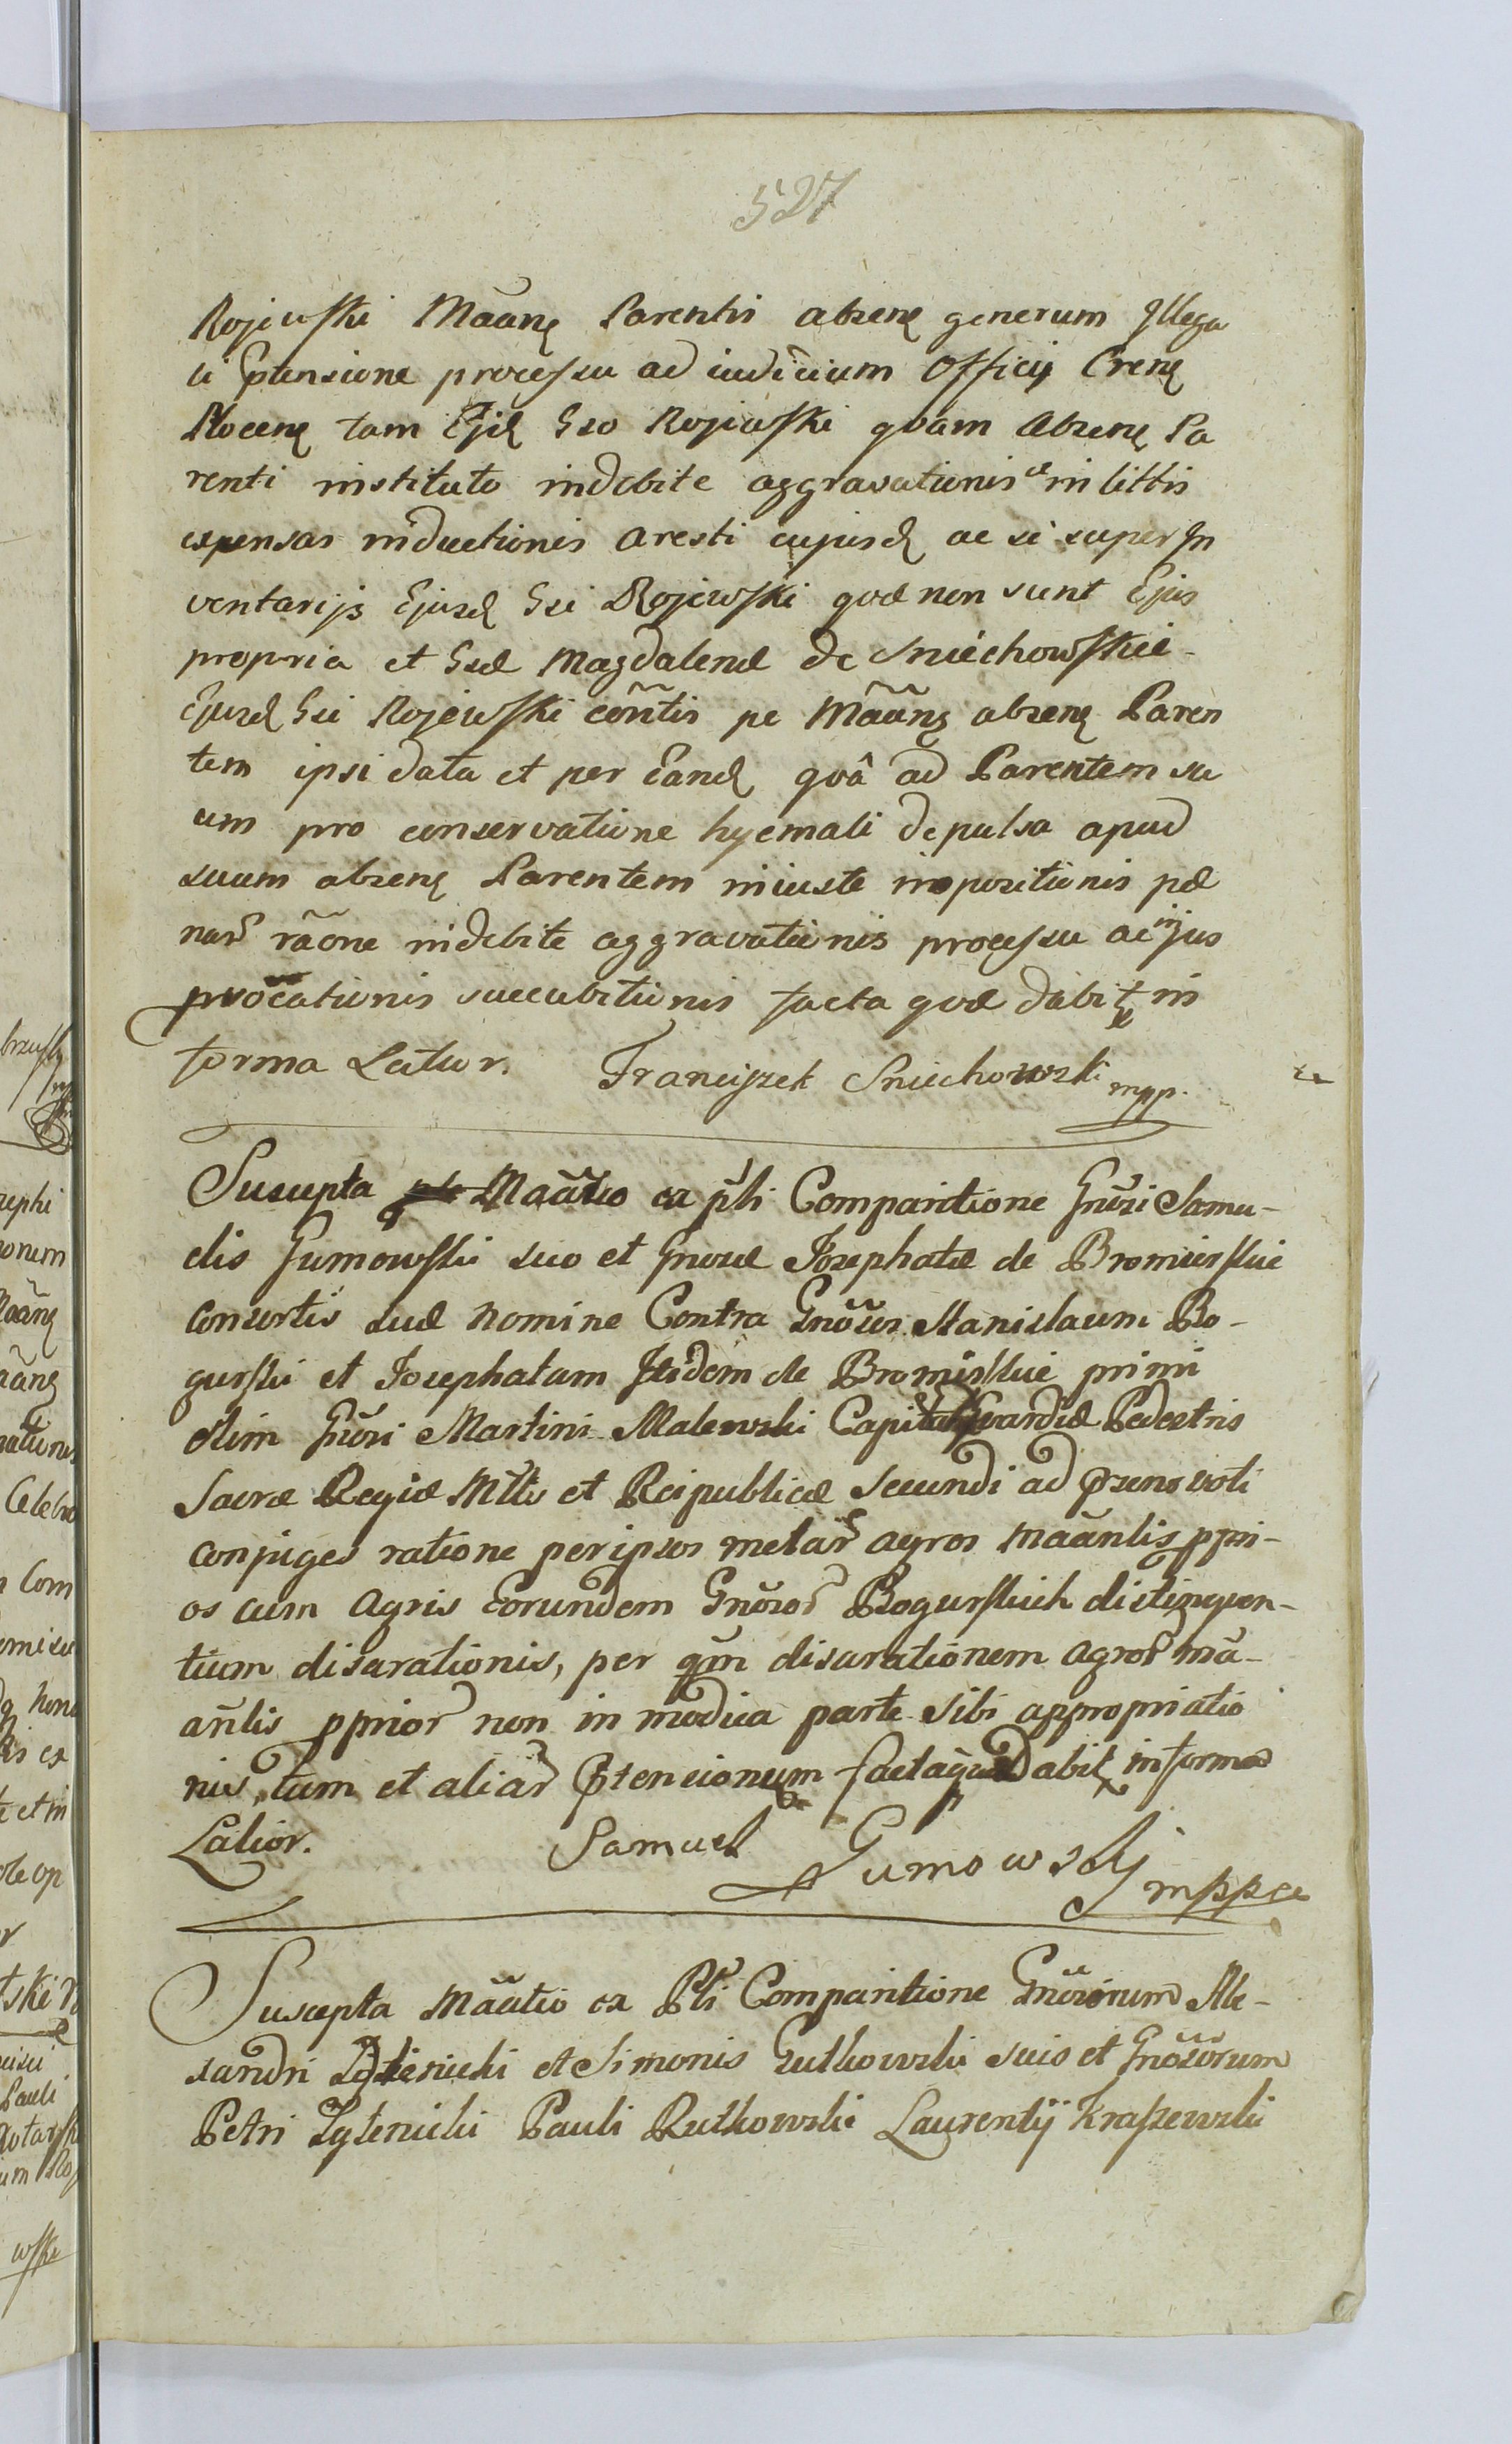 527
Rojewski Mãanę Parentis absenę generum Illega
li Ptensione processu ad iudicium Officij Crenę
Plocenę tam Ejd Gso Rojewski qvam Absenę Pa
renti instituto indebite aggravationis et in littis
expensas inductionis aresti cujusd ac si super In
ventarijs Ejusd Gsi Rojewski qvæ non sunt Ejus
propria et Gsæ Magdalenæ de Sniechowskie
Ejusd Gsi Rojewski cõntis pe Mãanę absenę Paren
tem ipsi data et per Eand qvâ ad Parentem su
um pro conservatione hyemali depulsa apud
suum absenę Parentem iniuste impositionis pæ
nar rãone indebite aggravationis processu ac in jus
provõcationis succubitionis facta qvæ dabit in
forma Latior. Franciszek Sniechowski mpp.
Suscepta Mãatio ex p̃ti Comparitione Gnõsi Samu-
elis Gumowski suo et Gnosæ Josephatæ de Bromierskie
Consortis suæ nomine Contra Gnõsos Stanislaum Bo-
gurski et Josephatam Itidem de Bromirskie primi
olim Gnõsi Martini Malewski Capitanei Gvardiæ Pedestris
Sacræ Regiæ Mttis et Reipublicæ secundi ad præsens voti
conjuges ratione per ipsos metar agros mãanlis ppri-
os cum Agris Eorundem Gnõsor Bogurskich distingven-
tium disarationis, per qm̃ disarationem agror mã-
añlis pprior non in modica parte sibi appropriatio
nis, tum et aliar Ptensionum facta qvæ dabit in forma
Latior. Samuel Gumowskj mppse
Suscepta Mãatio ex P̃ti Comparitione Gnõsorum Ale-
xandri Zglenicki et Simonis Gutkowski suis et Gnõsorum
Petri Zglenicki Pauli Rutkowski Laurentij Kraszewski